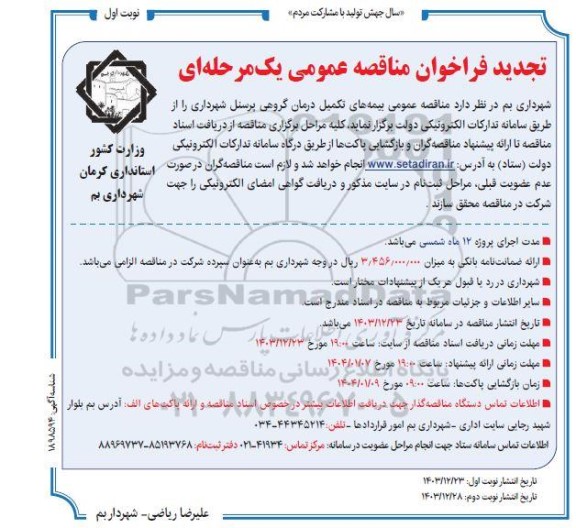 «سال جهش تولید با مشارکت مردم»
نوبت اول
تجدید فراخوان مناقصه عمومی یک‌مرحله‌ای
وزارت کشور
استانداری کرمان
شهرداری بم
شهرداری بم در نظر دارد مناقصه عمومی بیمه‌های تکمیل درمان گروهی پرسنل شهرداری را از
طریق سامانه تدارکات الکترونیکی دولت برگزار نماید. کلیه مراحل برگزاری مناقصه از دریافت اسناد
مناقصه تا ارائه پیشنهاد مناقصه‌گران و بازگشایی پاکت‌ها از طریق درگاه سامانه تدارکات الکترونیکی
دولت (ستاد) به آدرس: www.setadiran.ir انجام خواهد شد و لازم است مناقصه‌گران در صورت
عدم عضویت قبلی، مراحل ثبت‌نام در سایت مذکور و دریافت گواهی امضای الکترونیکی را جهت
شرکت در مناقصه محقق سازند.
مدت اجرای پروژه ۱۲ ماه شمسی می‌باشد.
ارائه ضمانت‌نامه بانکی به میزان ۳/۴۵۶/۰۰۰/۰۰۰ ریال در وجه شهرداری بم به‌عنوان سپرده شرکت در مناقصه الزامی می‌باشد.
شهرداری در رد یا قبول هر یک از پیشنهادات مختار است.
سایر اطلاعات و جزئیات مربوط به مناقصه در اسناد مندرج است.
تاریخ انتشار مناقصه در سامانه تاریخ ۱۴۰۳/۱۲/۲۳ می‌باشد.
مهلت زمانی دریافت اسناد مناقصه از سایت: ساعت ۱۹:۰۰ مورخ ۱۴۰۳/۱۲/۲۳
مهلت زمانی ارائه پیشنهاد: ساعت ۱۹:۰۰ مورخ ۱۴۰۴/۰۱/۰۷
زمان بازگشایی پاکت‌ها: ساعت ۰۹:۰۰ مورخ ۱۴۰۴/۰۱/۰۹
اطلاعات تماس دستگاه مناقصه‌گذار جهت دریافت اطلاعات بیشتر در خصوص اسناد مناقصه و ارائه پاکت‌های الف: آدرس بم بلوار
شهید رجایی سایت اداری -شهرداری بم امور قراردادها -تلفن: ۴۴۳۴۵۲۱۴-۰۳۴
اطلاعات تماس سامانه ستاد جهت انجام مراحل عضویت در سامانه: مرکز تماس: ۴۱۹۳۴-۰۲۱ دفتر ثبت‌نام: ۸۵۱۹۳۷۶۸-۸۸۹۶۹۷۳۷
تاریخ انتشار نوبت اول: ۱۴۰۳/۱۲/۲۳
تاریخ انتشار نوبت دوم: ۱۴۰۳/۱۲/۲۸
علیرضا ریاضی- شهردار بم
شناسه آگهی: ۱۸۹۸۵۹۴
ParsNamadData
پایگاه اطلاع رسانی مناقصه و مزایده
۰۲۱-۸۸۳۴۹۶۷۰-۵